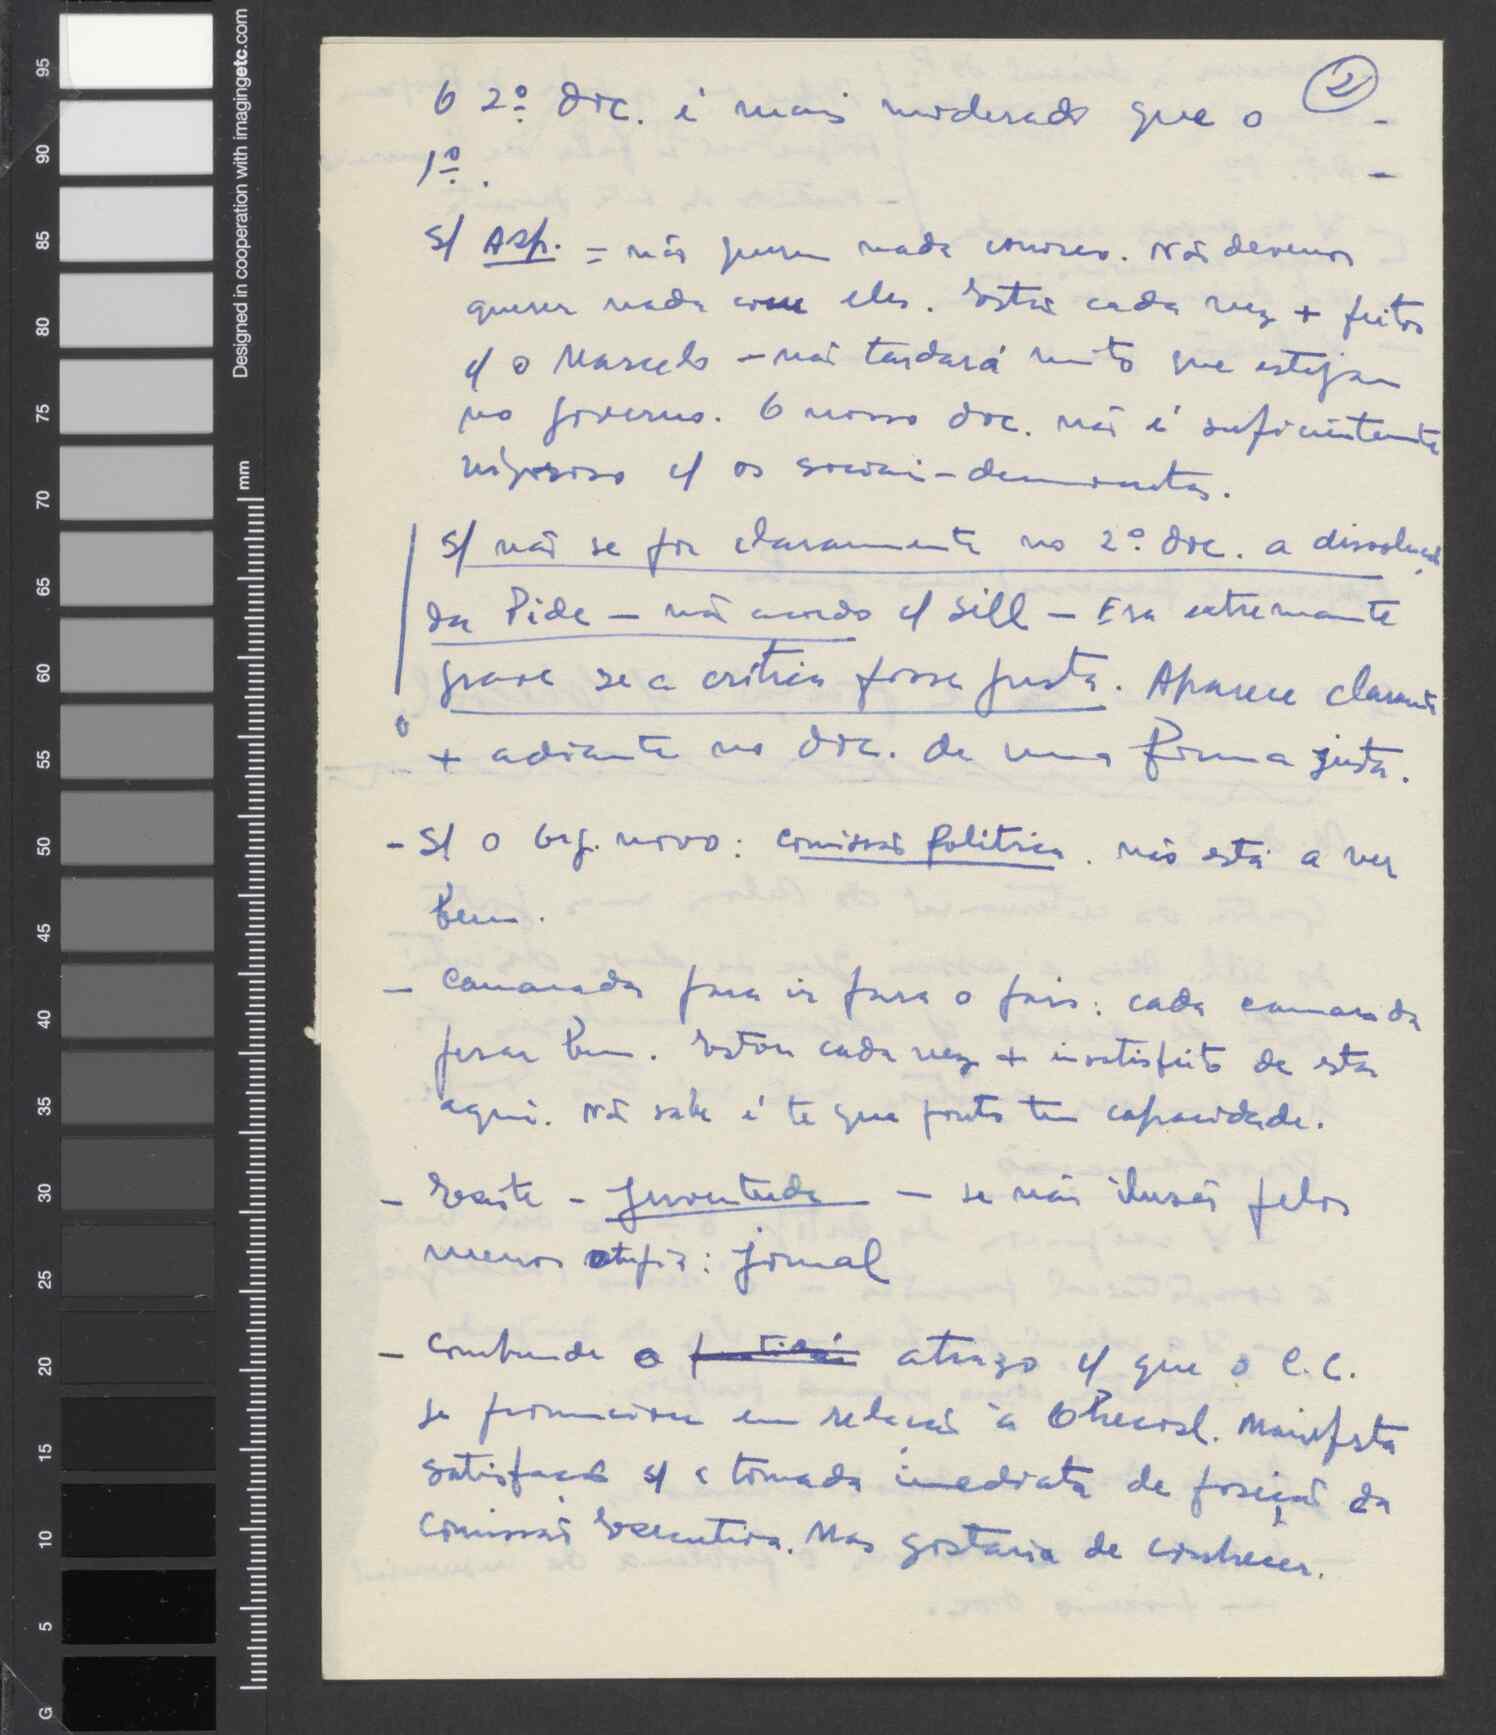 2
O 2º doc. é mais moderado que o -
1º. -
S/ ASP. = não querem nada connosco. Nós devemos
querer nada com eles. Estão cada vez + feitos
c/ o Marcelo - não tardará muito que estejam
no governo. O nosso doc. não é suficientemente
rigoroso c/ os sociais-democratas.
S/ não se pôr claramente no 2º doc. a dissolução
da Pide - não acordo c/ Sill - Era extremamente
grave se a crítica fosse justa. Aparece claramente
+ adiante no doc. de uma forma justa.
- S/ o org. novo: comissão Política. não está a ver
bem.
- Camaradas para ir para o país: cada camarada
pesar bem. Estou cada vez + insatisfeito de estar
aqui. Não sabe é te que ponto tem capacidade.
- Existe - juventude - se não ilusão pelos
menos utopia: jornal
- Compreende o atrazo c/ que o C.C.
se pronunciou em relação à Checosl. Manifesta
satisfação s/ a tomada imediata de posição da
Comissão Executiva. Mas gostaria de conhecer.
Designed in cooperation with imagingetc.com
mm
95
90
85
80
75
70
65
60
55
50
45
40
35
30
25
20
15
10
5
G